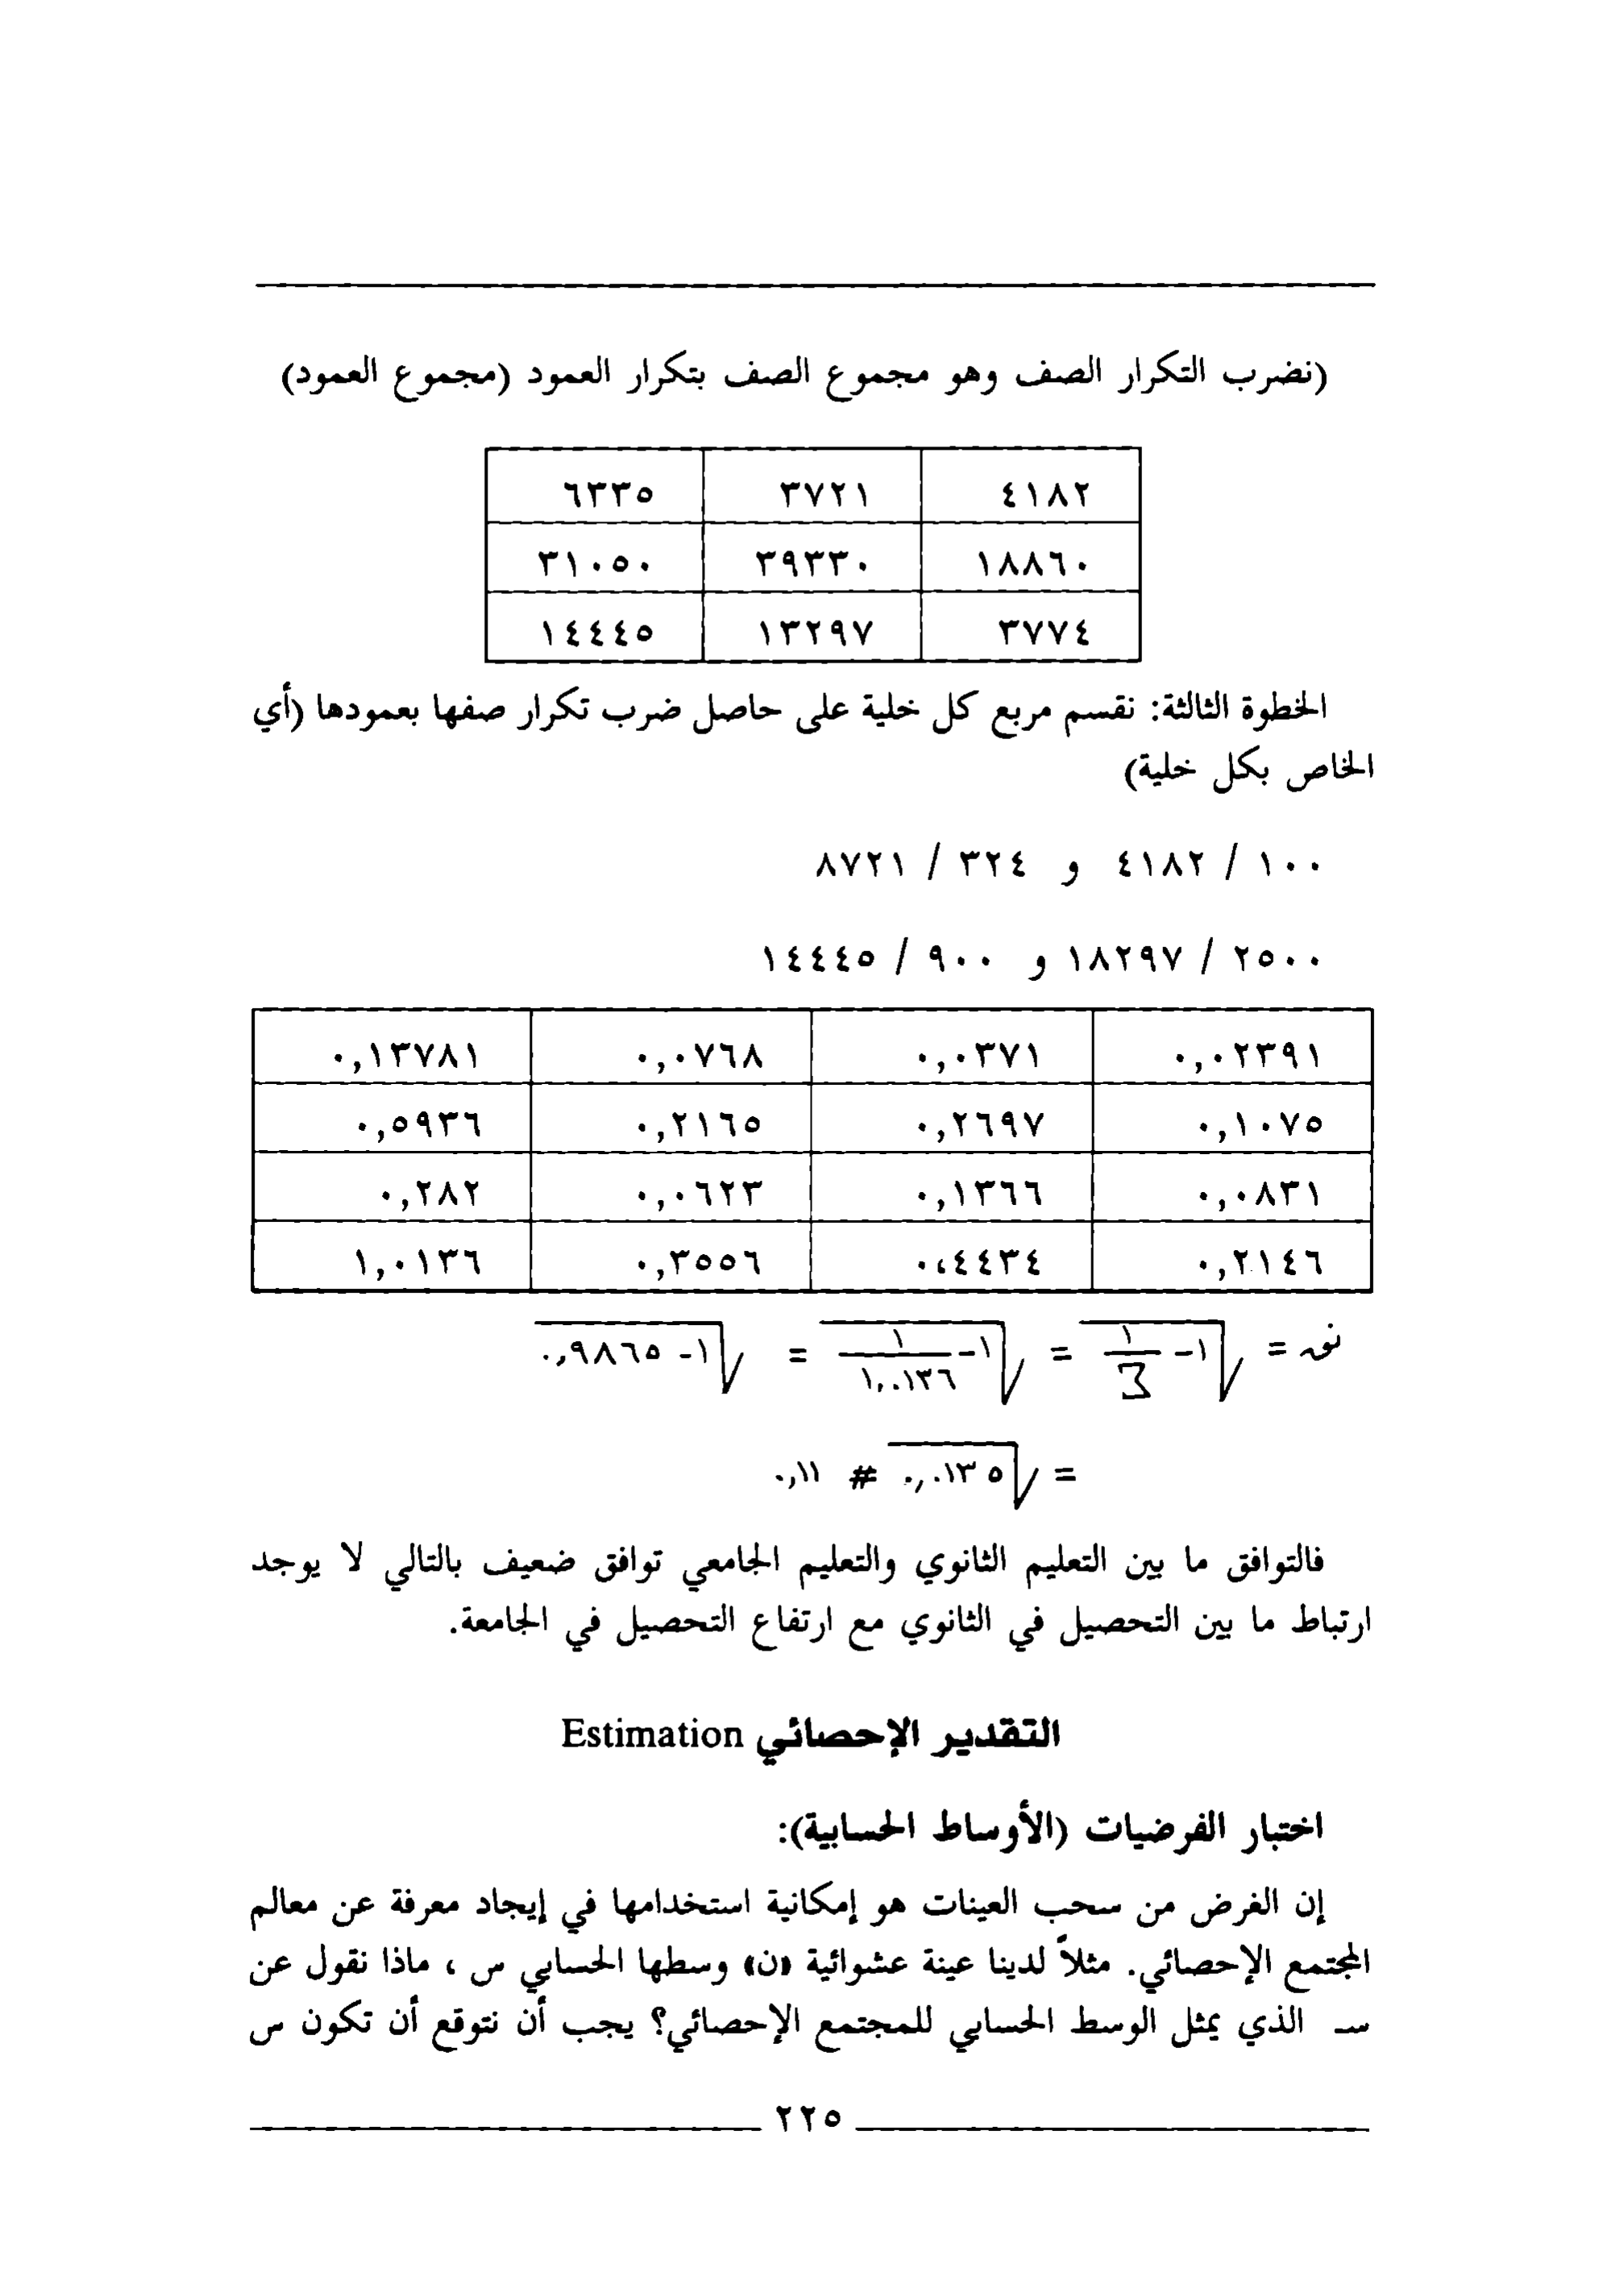 (نضرب التكرار الصف وهو مجموع الصف بتكرار العمود (مجموع العمود)
٤١٨٢ ٣٧٢١ ٦٣٣٥
١٨٨٦٠ ٣٩٣٣٠ ٣١٠٥٠
٣٧٧٤ ١٣٢٩٧ ١٤٤٤٥
الخطوة الثالثة: نقسم مربع كل خلية على حاصل ضرب تكرار صفها بعمودها (أي
الخاص بكل خلية)
١٠٠ / ٤١٨٢ و ٣٢٤ / ٨٧٢١
٢٥٠٠ / ١٨٢٩٧ و ٩٠٠ / ١٤٤٤٥
٠,٠٢٣٩١ ٠,٠٣٧١ ٠,٠٧٦٨ ٠,١٣٧٨١
٠,١٠٧٥ ٠,٢٦٩٧ ٠,٢١٦٥ ٠,٥٩٣٦
٠,٠٨٣١ ٠,١٣٦٦ ٠,٠٦٢٣ ٠,٢٨٢
٠,٢١٤٦ ٠،٤٤٣٤ ٠,٣٥٥٦ ١,٠١٣٦
نق = √(١ - ١/3) = √(١ - ١/١,٠١٣٦) = √(١ - ٠,٩٨٦٥)
= √٠,٠١٣٥ # ٠,١١
فالتوافق ما بين التعليم الثانوي والتعليم الجامعي توافق ضعيف بالتالي لا يوجد
ارتباط ما بين التحصيل في الثانوي مع ارتفاع التحصيل في الجامعة.
التقدير الإحصائي Estimation
اختبار الفرضيات (الأوساط الحسابية):
إن الغرض من سحب العينات هو إمكانية استخدامها في إيجاد معرفة عن معالم
المجتمع الإحصائي. مثلاً لدينا عينة عشوائية «ن» وسطها الحسابي س ، ماذا نقول عن
سـ الذي يمثل الوسط الحسابي للمجتمع الإحصائي؟ يجب أن نتوقع أن تكون س
٢٢٥